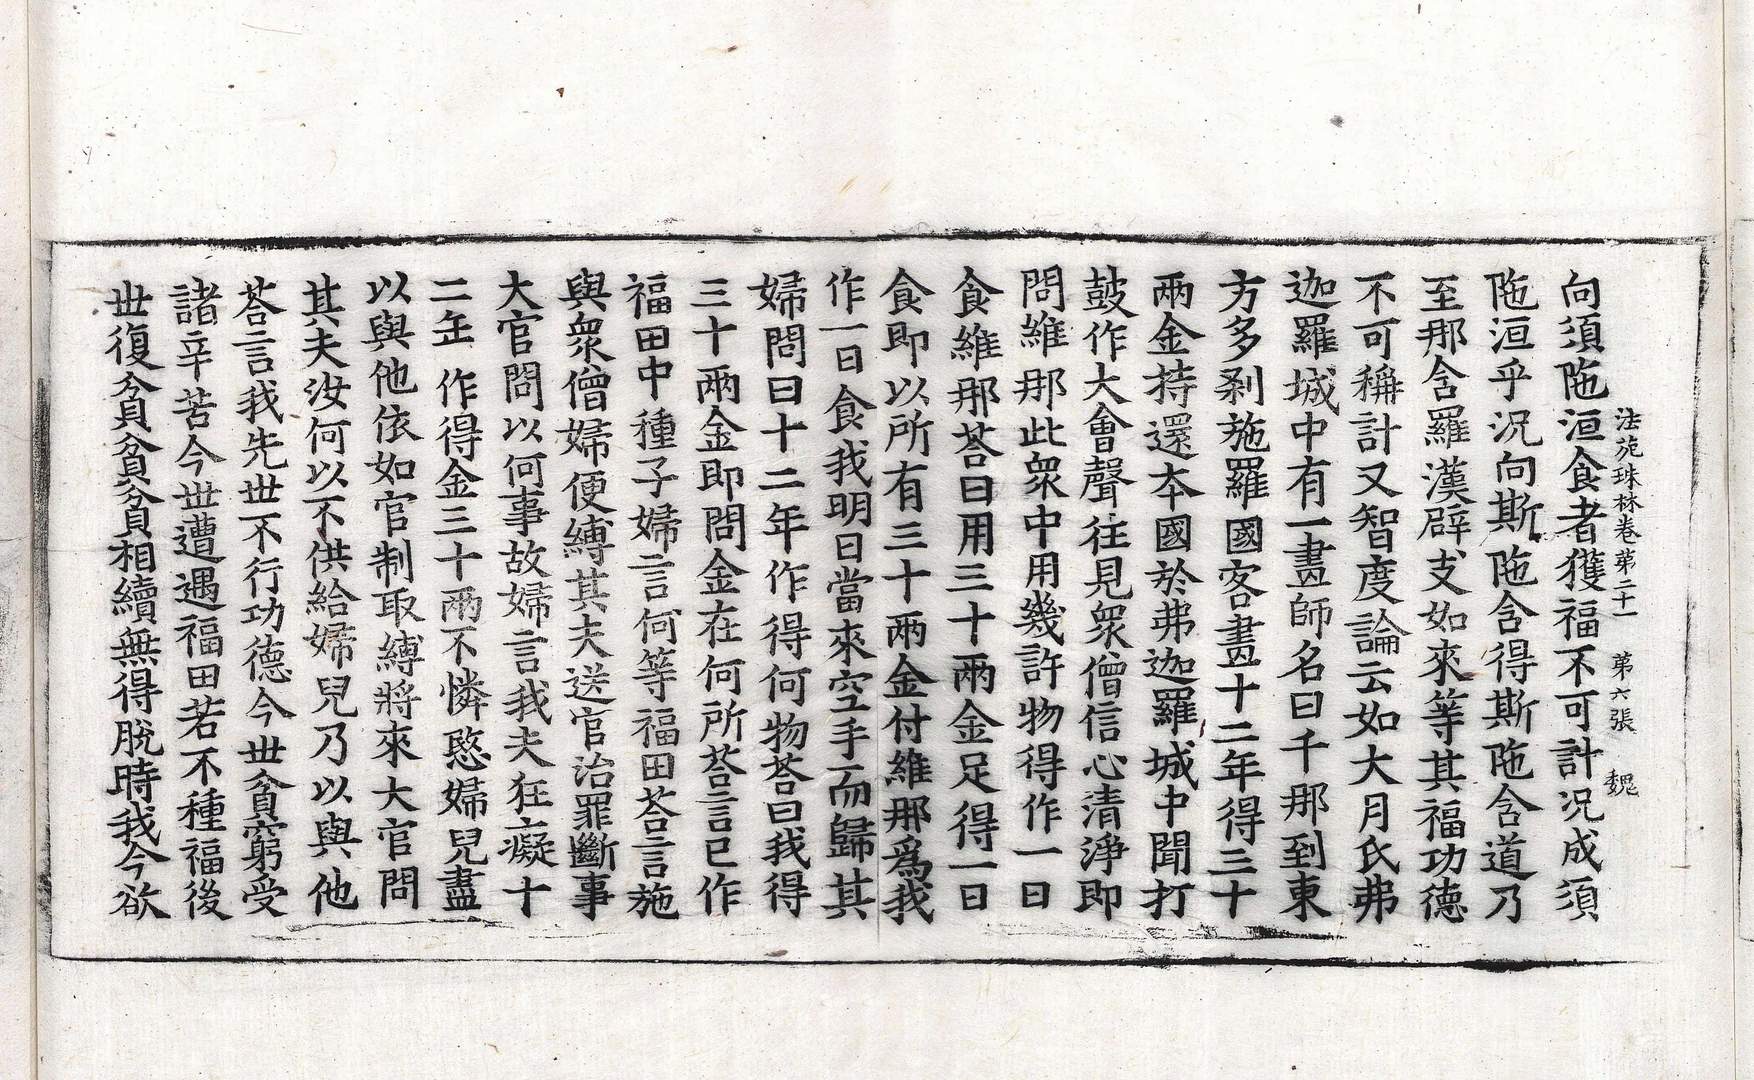 法苑珠林卷第二十一　第六張　魏
向須陁洹食者獲福不可計況成須
陁洹乎況向斯陁含得斯陁含道乃
至那含羅漢辟支如來等其福功德
不可稱計又智度論云如大月氏弗
迦羅城中有一畫師名曰千那到東
方多剎施羅國客畫十二年得三十
兩金持還本國於弗迦羅城中聞打
鼓作大會聲往見衆僧信心清淨即
問維那此衆中用幾許物得作一日
食維那荅曰用三十兩金足得一日
食即以所有三十兩金付維那爲我
作一日食我明日當來空手而歸其
婦問曰十二年作得何物荅曰我得
三十兩金即問金在何所荅言已作
福田中種子婦言何等福田荅言施
與衆僧婦便縛其夫送官治罪斷事
大官問以何事故婦言我夫狂癡十
二年作得金三十兩不憐愍婦兒盡
以與他依如官制取縛將來大官問
其夫汝何以不供給婦兒乃以與他
荅言我先世不行功德今世貧窮受
諸辛苦今世遭遇福田若不種福後
世復貧貧貧相續無得脫時我今欲